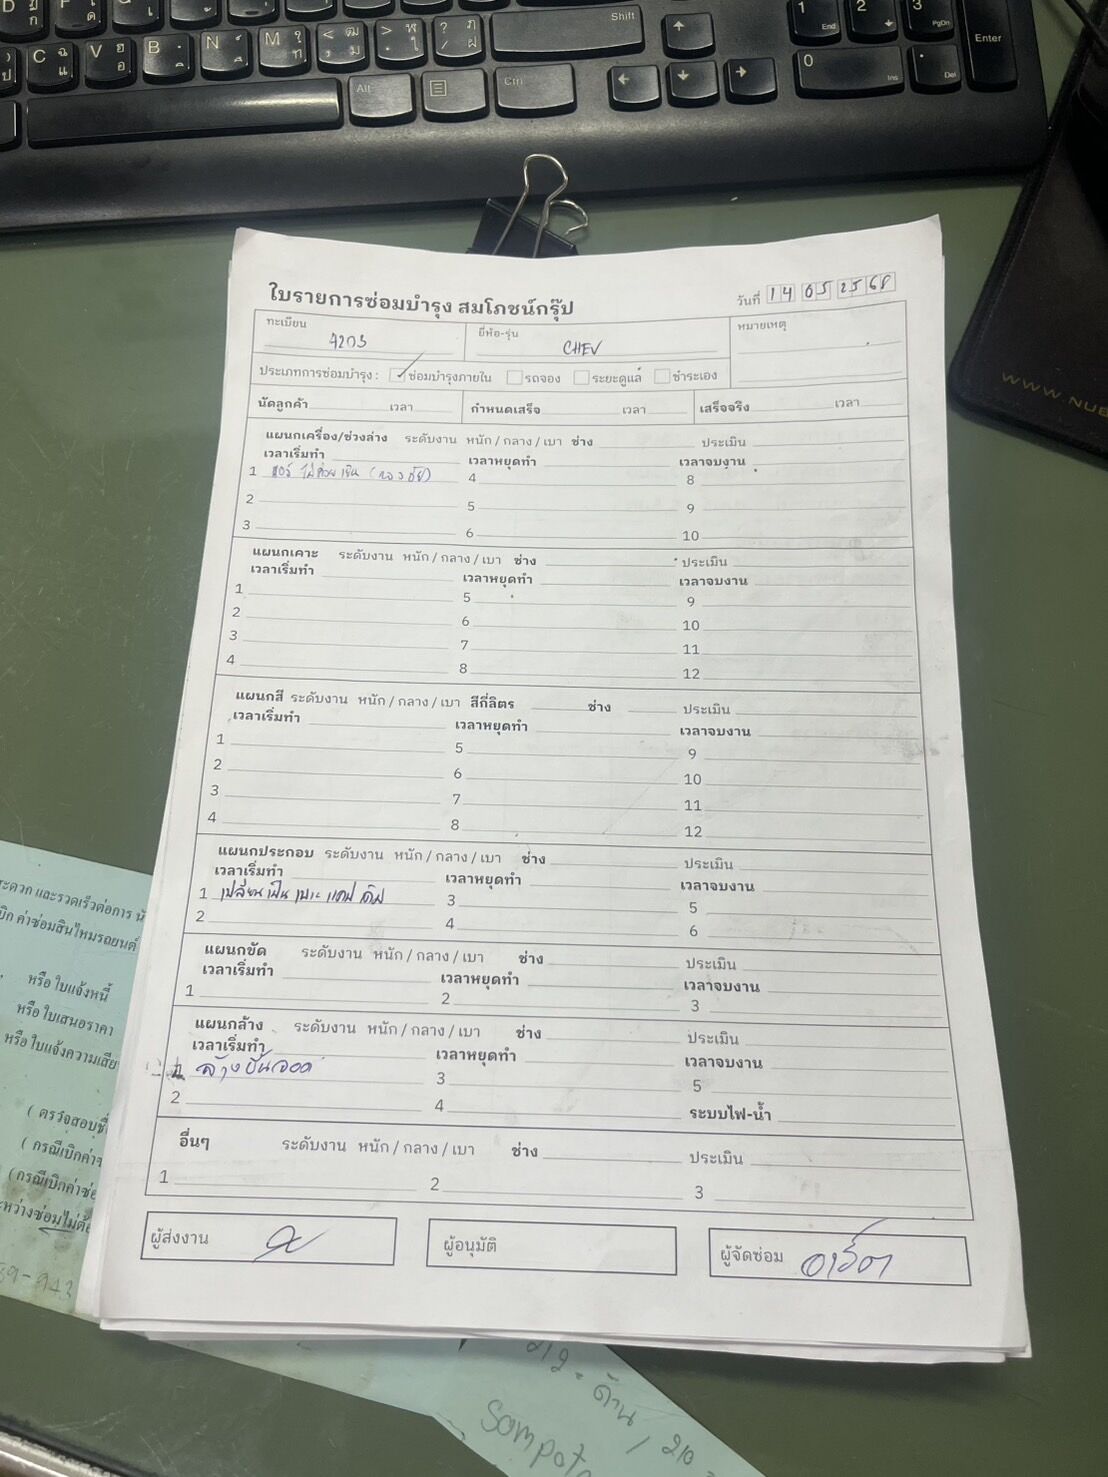 ใบรายการซ่อมบำรุง สมโภชน์กรุ๊ป
วันที่ 14 05 2568
ทะเบียน 4203
ยี่ห้อ-รุ่น CHEV
หมายเหตุ
ประเภทการซ่อมบำรุง : ซ่อมบำรุงภายใน รถจอง ระยะดูแล ชำระเอง
นัดลูกค้า เวลา กำหนดเสร็จ เวลา เสร็จจริง เวลา
แผนกเครื่อง/ช่วงล่าง ระดับงาน หนัก / กลาง / เบา ช่าง ประเมิน
เวลาเริ่มทำ เวลาหยุดทำ เวลาจบงาน
1 แอร์ ไม่ค่อย เย็น 4 8
2 5 9
3 6 10
แผนกเคาะ ระดับงาน หนัก / กลาง / เบา ช่าง ประเมิน
เวลาเริ่มทำ เวลาหยุดทำ เวลาจบงาน
1 5 9
2 6 10
3 7 11
4 8 12
แผนกสี ระดับงาน หนัก / กลาง / เบา สีกี่ลิตร ช่าง ประเมิน
เวลาเริ่มทำ เวลาหยุดทำ เวลาจบงาน
1 5 9
2 6 10
3 7 11
4 8 12
แผนกประกอบ ระดับงาน หนัก / กลาง / เบา ช่าง ประเมิน
เวลาเริ่มทำ เวลาหยุดทำ เวลาจบงาน
1 เปลี่ยน เป็น เบาะ แคป เดิม 3 5
2 4 6
แผนกขัด ระดับงาน หนัก / กลาง / เบา ช่าง ประเมิน
เวลาเริ่มทำ เวลาหยุดทำ เวลาจบงาน
1 2 3
แผนกล้าง ระดับงาน หนัก / กลาง / เบา ช่าง ประเมิน
เวลาเริ่มทำ เวลาหยุดทำ เวลาจบงาน
1 ล้างขึ้นจอด 3 5
2 4 ระบบไฟ-น้ำ
อื่นๆ ระดับงาน หนัก / กลาง / เบา ช่าง ประเมิน
1 2 3
ผู้ส่งงาน ผู้อนุมัติ ผู้จัดซ่อม
หรือ ใบแจ้งหนี้
หรือ ใบเสนอราคา
หรือ ใบแจ้งความเสีย
( ตรวจสอบชื่
WWW.NUB
Shift
Alt
Ctrl
Enter
1 End 2 3 PgDn
0 Ins . Del